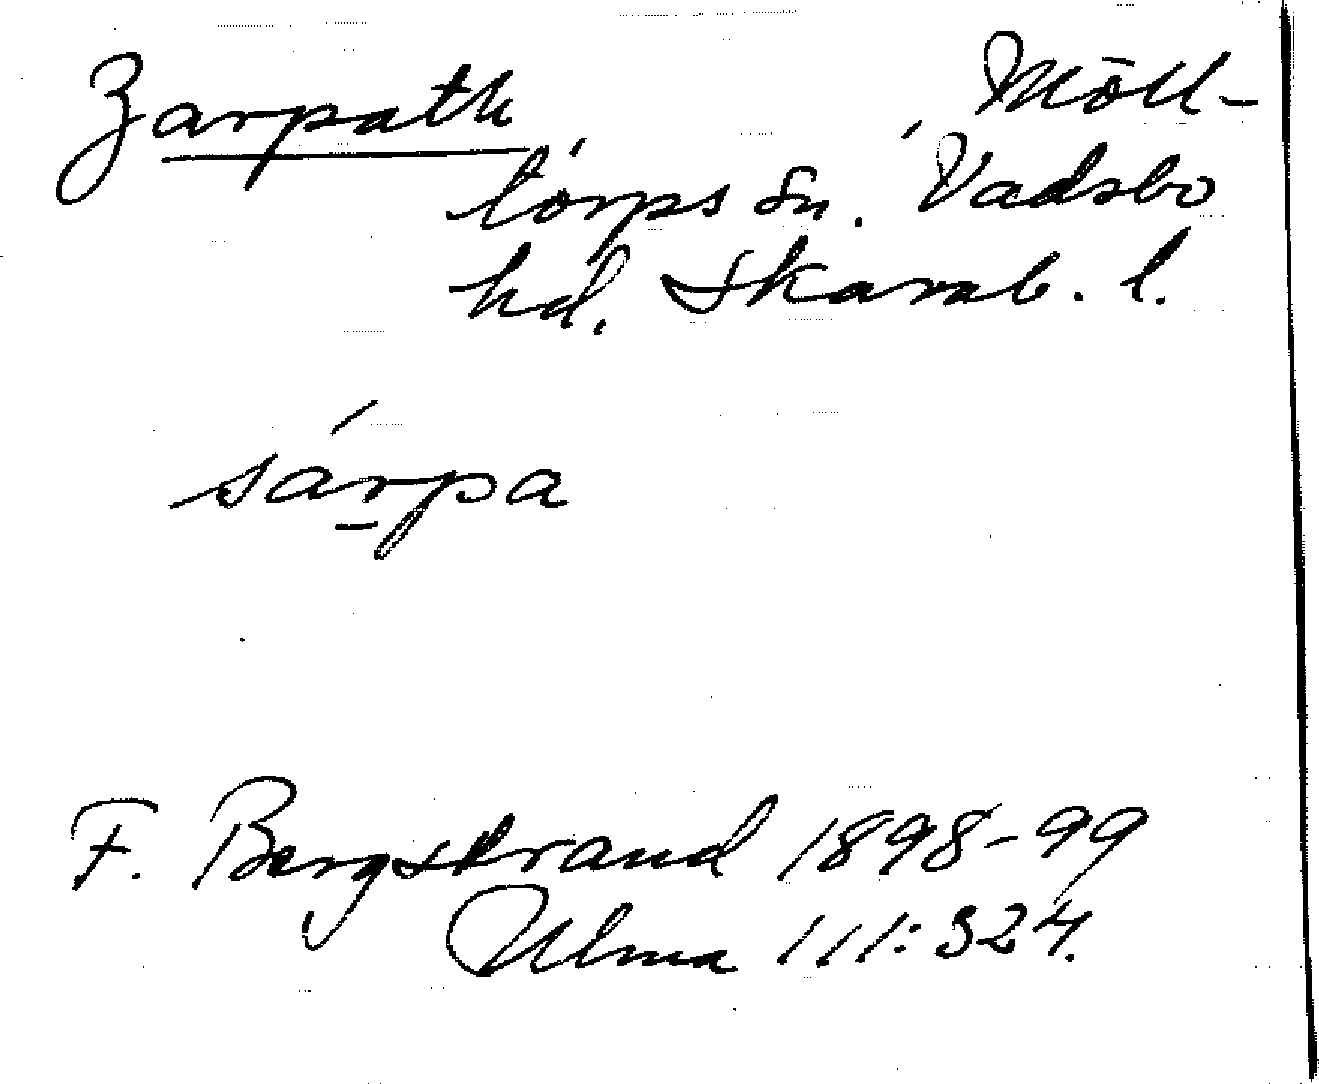 Zarpath, Möll-
torps sn. Vadsbo
hd. Skarab. l.
sárpa
F. Bergstrand 1898-99
Ulma 111:324.